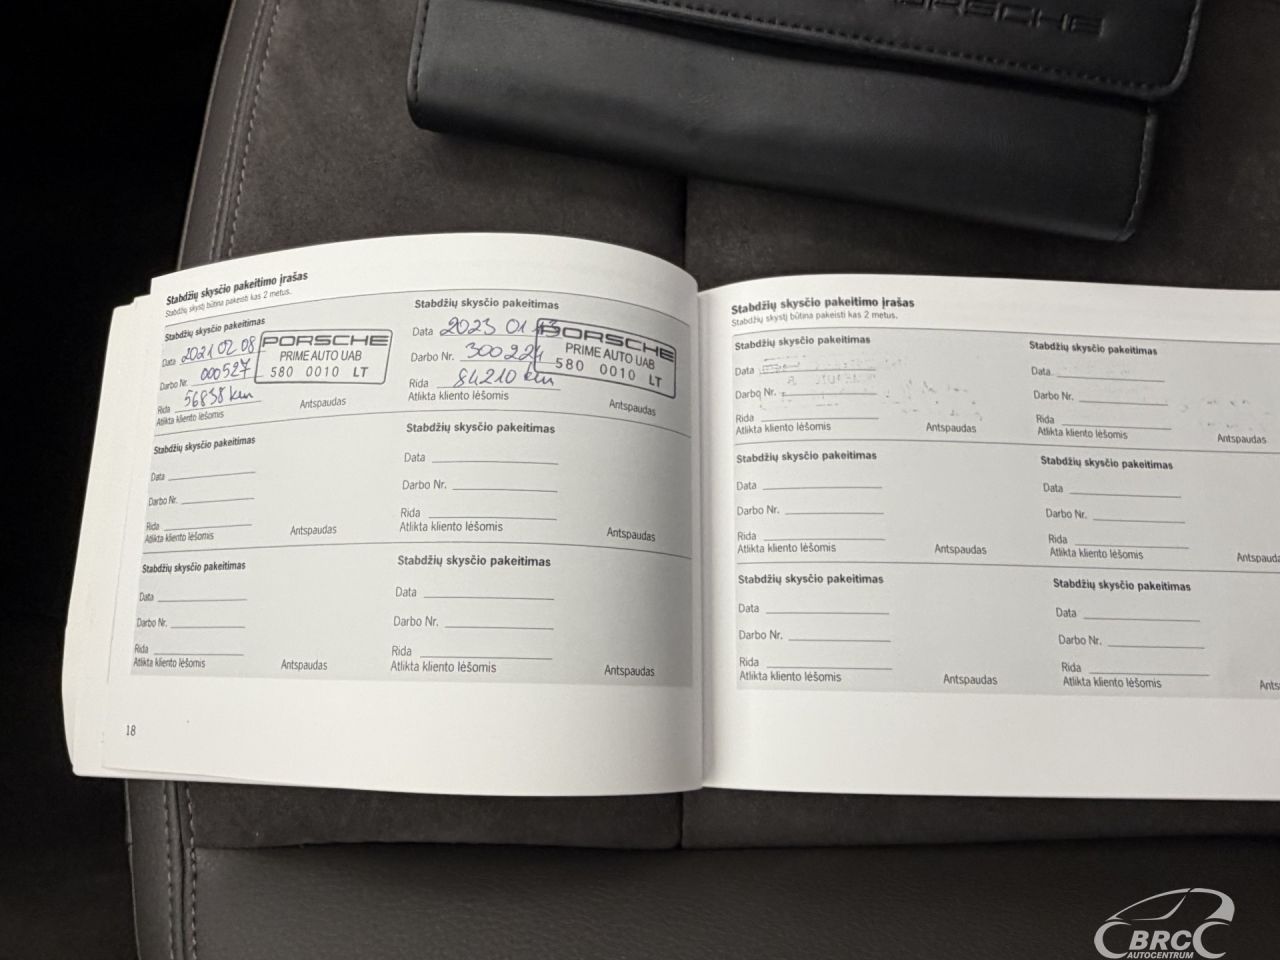 PORSCHE
Stabdžių skysčio pakeitimo įrašas
Stabdžių skystį būtina pakeisti kas 2 metus.
Stabdžių skysčio pakeitimas
Data 2021 02 08
Darbo Nr. 000527
Rida 56838 km
Atlikta kliento lėšomis
Antspaudas
PORSCHE
PRIME AUTO UAB
580 0010 LT
Stabdžių skysčio pakeitimas
Data 2023 01 13
Darbo Nr. 300221
Rida 84210 km
Atlikta kliento lėšomis
Antspaudas
PORSCHE
PRIME AUTO UAB
580 0010 LT
Stabdžių skysčio pakeitimas
Data
Darbo Nr.
Rida
Atlikta kliento lėšomis
Antspaudas
Stabdžių skysčio pakeitimas
Data
Darbo Nr.
Rida
Atlikta kliento lėšomis
Antspaudas
Stabdžių skysčio pakeitimas
Data
Darbo Nr.
Rida
Atlikta kliento lėšomis
Antspaudas
Stabdžių skysčio pakeitimas
Data
Darbo Nr.
Rida
Atlikta kliento lėšomis
Antspaudas
18
Stabdžių skysčio pakeitimo įrašas
Stabdžių skystį būtina pakeisti kas 2 metus.
Stabdžių skysčio pakeitimas
Data
Darbo Nr.
Rida
Atlikta kliento lėšomis
Antspaudas
Stabdžių skysčio pakeitimas
Data
Darbo Nr.
Rida
Atlikta kliento lėšomis
Antspaudas
Stabdžių skysčio pakeitimas
Data
Darbo Nr.
Rida
Atlikta kliento lėšomis
Antspaudas
Stabdžių skysčio pakeitimas
Data
Darbo Nr.
Rida
Atlikta kliento lėšomis
Antspauda
Stabdžių skysčio pakeitimas
Data
Darbo Nr.
Rida
Atlikta kliento lėšomis
Antspaudas
Stabdžių skysčio pakeitimas
Data
Darbo Nr.
Rida
Atlikta kliento lėšomis
Ants
BRC
AUTOCENTRUM